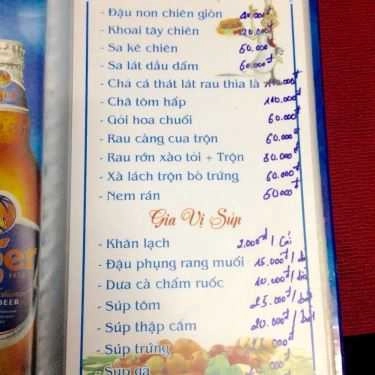 - Đậu non chiên giòn 40.000đ
- Khoai tây chiên 120.000đ
- Sa kê chiên 60.000
- Sa lát dầu dấm 60.000đ
- Chả cá thát lát rau thìa là
- Chã tôm hấp 110.000đ
- Gỏi hoa chuối 60.000đ
- Rau càng cua trộn 60.000đ
- Rau rớn xào tỏi + Trộn 80.000đ
- Xà lách trộn bò trứng 60.000đ
- Nem rán 50000đ
Gia Vị Súp
- Khăn lạch 2.000đ / Cái
- Đậu phụng rang muối 15.000đ /
- Dưa cà chấm ruốc 10.000đ /
- Súp tôm 25.000đ /
- Súp thập cẩm 20.000đ /
- Súp trứng
- Súp gà
BEER